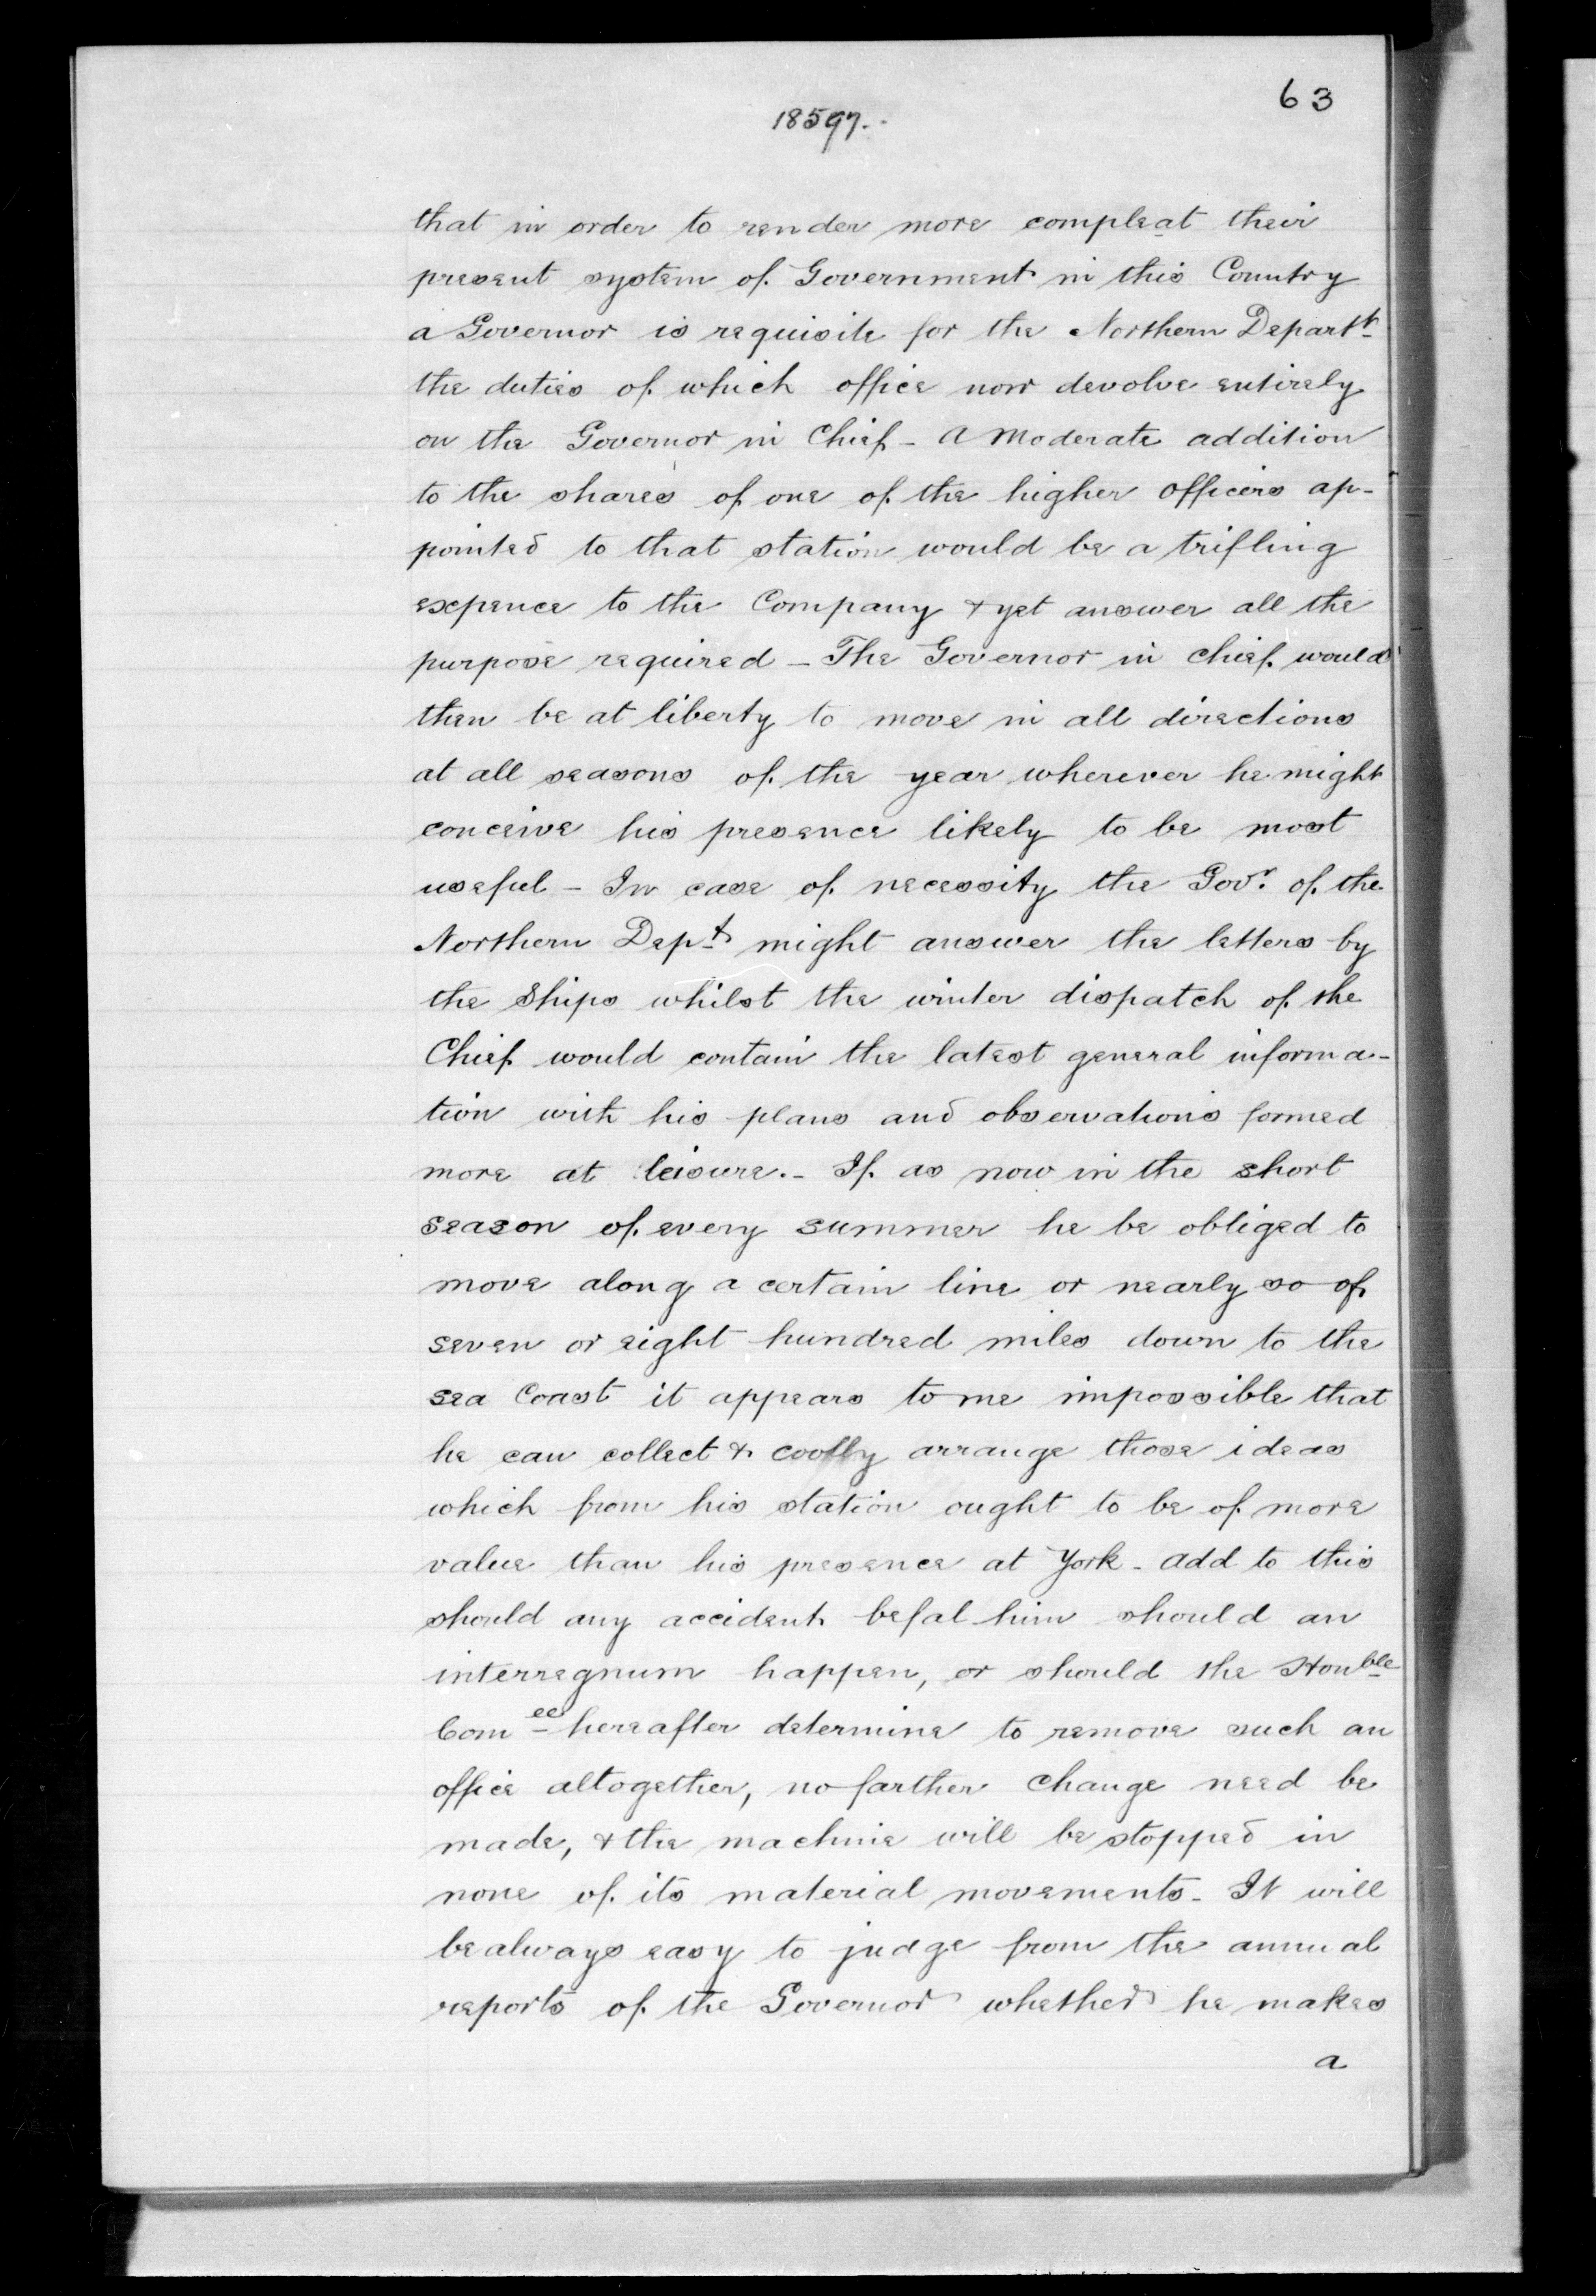 63
18597.
that in order to render more compleat their
present system of Government in this Country
a Governor is requisite for the Northern Departt
the duties of which office now devolve entirely
on the Governor in Chief - A moderate addition
to the shares of one of the higher officers ap-
pointed to that station would be a trifling
expence to the Company & yet answer all the
purpose required - The Governor in chief would
then be at liberty to move in all directions
at all seasons of the year wherever he might
conceive his presence likely to be most
useful - In case of necessity the Govr. of the
Northern Dept might answer the letters by
the Ships whilst the winter dispatch of the
Chief would contain the latest general informa-
tion with his plans and observations formed
more at leisure. - If as now in the short
season of every summer he be obliged to
move along a certain line or nearly so of
seven or eight hundred miles down to the
sea Coast it appears to me impossible that
he can collect & coolly arrange those ideas
which from his station ought to be of more
value than his presence at York - add to this
should any accident befal him should an
interregnum happen, or should the Honble
Comee hereafter determine to remove such an
office altogether, no farther change need be
made, & the machine will be stopped in
none of its material movements - It will
be always easy to judge from the annual
reports of the Governor whether he makes
a